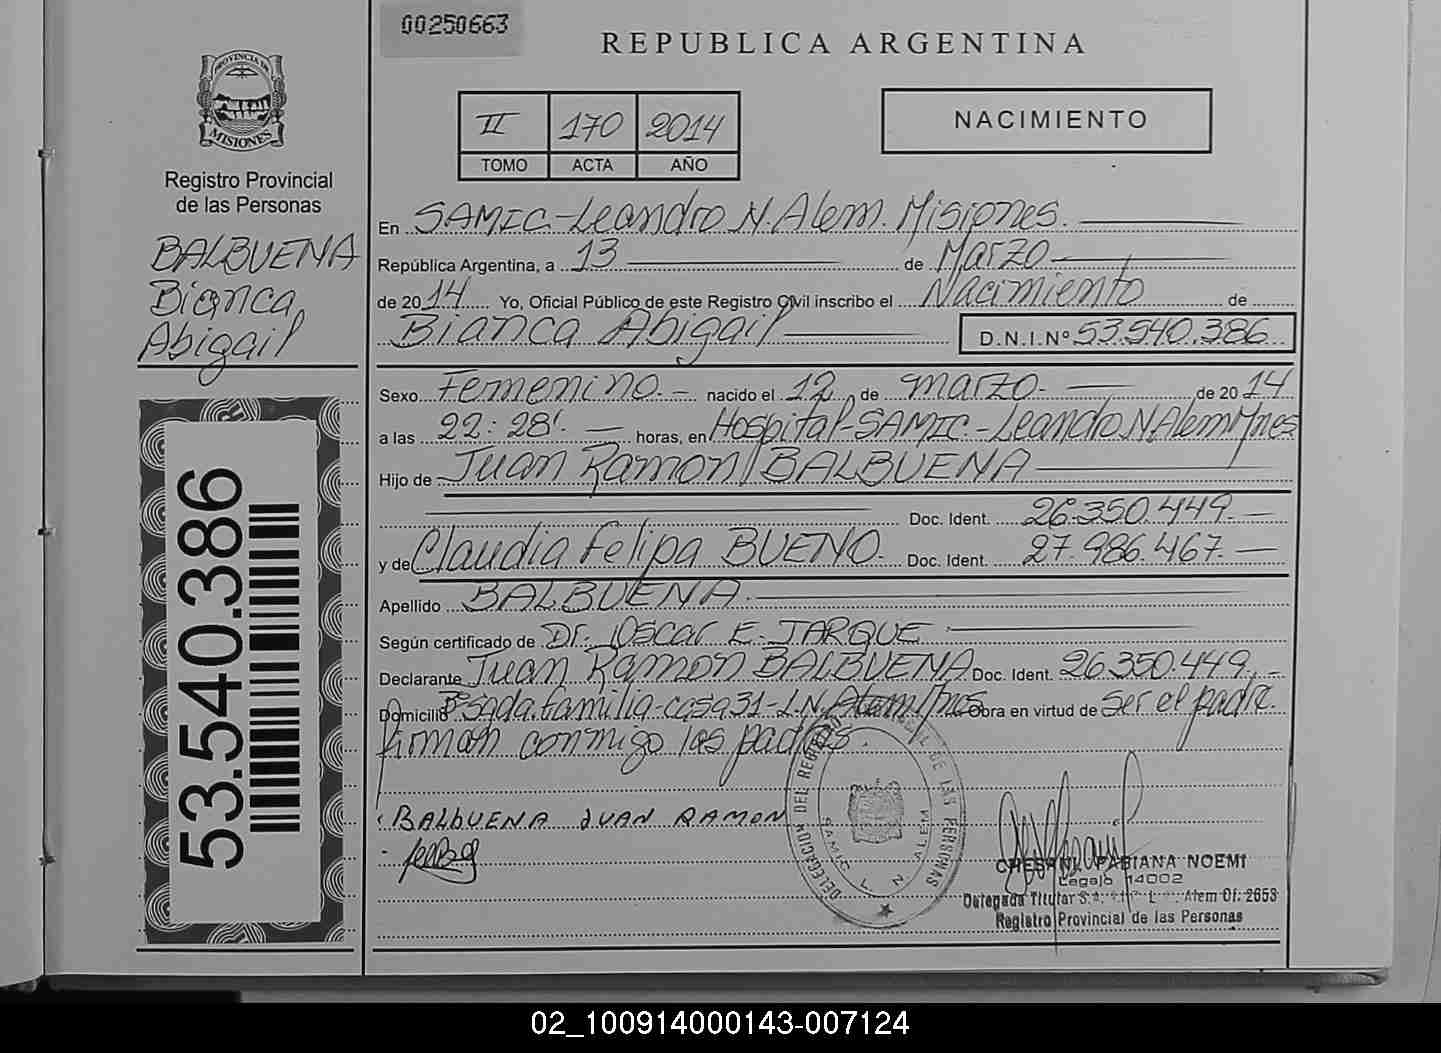 00250663
REPUBLICA ARGENTINA
PROVINCIA DE
MISIONES
Registro Provincial
de las Personas
BALBUENA
Bianca
Abigail
53.540.386
II 170 2014
TOMO ACTA AÑO
NACIMIENTO
En SAMIC-Leandro N. Alem. Misiones.
República Argentina, a 13 de Marzo
de 2014 Yo, Oficial Público de este Registro Civil inscribo el Nacimiento de
Bianca Abigail D.N.I.Nº 53.540.386
Sexo Femenino.- nacido el 12 de marzo- de 2014
a las 22:28'. horas, en Hospital-SAMIC.-Leandro N. Alem Mnes
Hijo de Juan Ramon BALBUENA
Doc. Ident. 26.350.449.-
y de Claudia Felipa BUENO. Doc. Ident. 27.986.467.-
Apellido BALBUENA.
Según certificado de Dr. Oscar E. JARQUE
Declarante Juan Ramon BALBUENA Doc. Ident. 26.350.449,-
Domicilio Bº Sgda. familia-casa 31-L.N. Alem Mnes Obra en virtud de ser el padre.
firman conmigo los padres.
BALBUENA JUAN RAMON
DELEGACION DEL REGISTRO PROVINCIAL DE LAS PERSONAS
SAMIC L. N. ALEM
CHESANI, FABIANA NOEMI
Legajo 14002
Delegada Titular L. Alem Of. 2653
Registro Provincial de las Personas
02_100914000143-007124